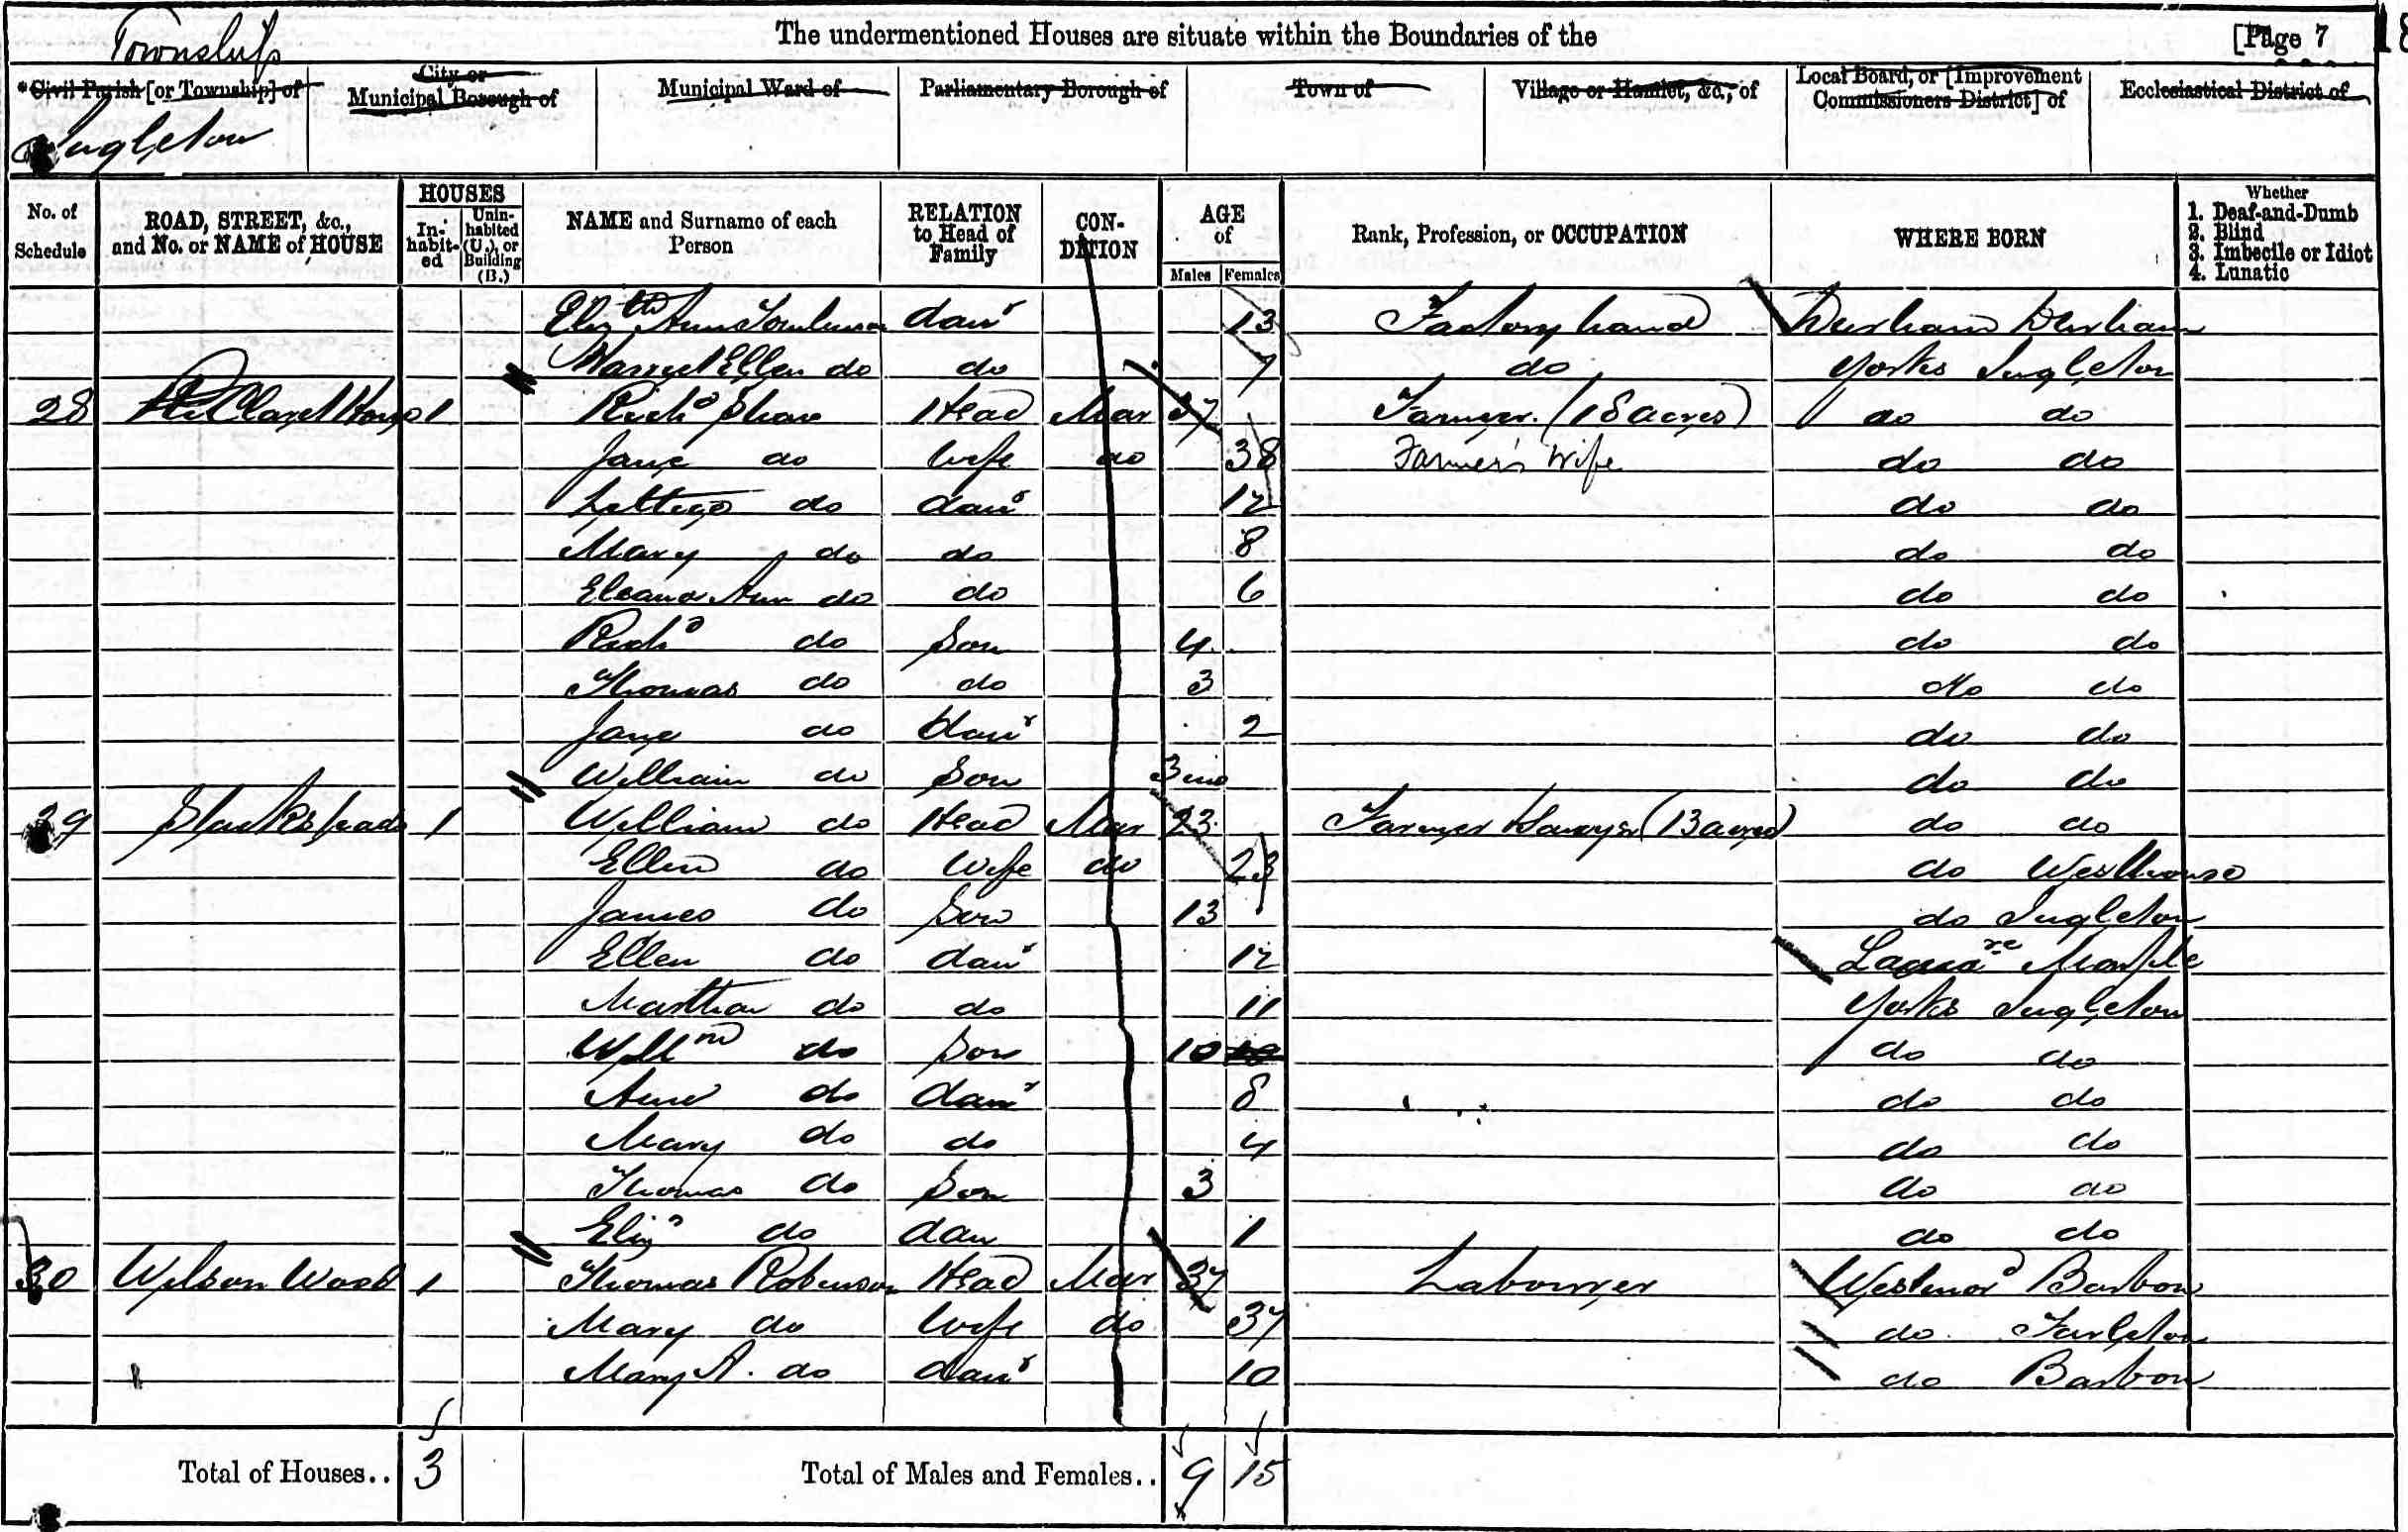 The undermentioned Houses are situate within the Boundaries of the
[Page 7
18
Township
*Civil Parish [or Township] of
City or Municipal Borough of
Municipal Ward of
Parliamentary Borough of
Town of
Village or Hamlet, &c., of
Local Board, or [Improvement Commissioners District] of
Ecclesiastical District of
Ingleton
No. of Schedule
ROAD, STREET, &c., and No. or NAME of HOUSE
HOUSES
In-habit-ed
Unin-habited (U.), or Building (B.)
NAME and Surname of each Person
RELATION to Head of Family
CON-DITION
AGE of
Males
Females
Rank, Profession, or OCCUPATION
WHERE BORN
Whether
1. Deaf-and-Dumb
2. Blind
3. Imbecile or Idiot
4. Lunatic
Elizth Ann Tomlinson daur 13 Factory hand Durham Durham
Ellen do do 7 do Yorks Ingleton
28 1 Richd Shaw Head Mar 37 Farmer (18 acres) do do
Jane do Wife do 38 Farmer's Wife do do
do daur 12 do do
Mary do do 8 do do
Eleanor Ann do do 6 do do
Richd do Son 4 do do
Thomas do do 3 do do
Jane do daur 2 do do
William do Son 3 mo do do
29 1 William do Head Mar 23 Farmer (13 acres) do do
Ellen do Wife do 23 do Westhouse
James do Son 13 do Ingleton
Ellen do daur 12
Martha do do 11 Yorks Ingleton
Willm do Son 10 do do
Ann do daur 8 do do
Mary do do 4 do do
Thomas do Son 3 do do
Eliza do dau 1 do do
30 Wilson Wood 1 Thomas Robinson Head Mar 37 Labourer Westmord Barbon
Mary do Wife do 37 do Farleton
Mary A. do daur 10 do Barbon
Total of Houses.. 3
Total of Males and Females.. 9 15